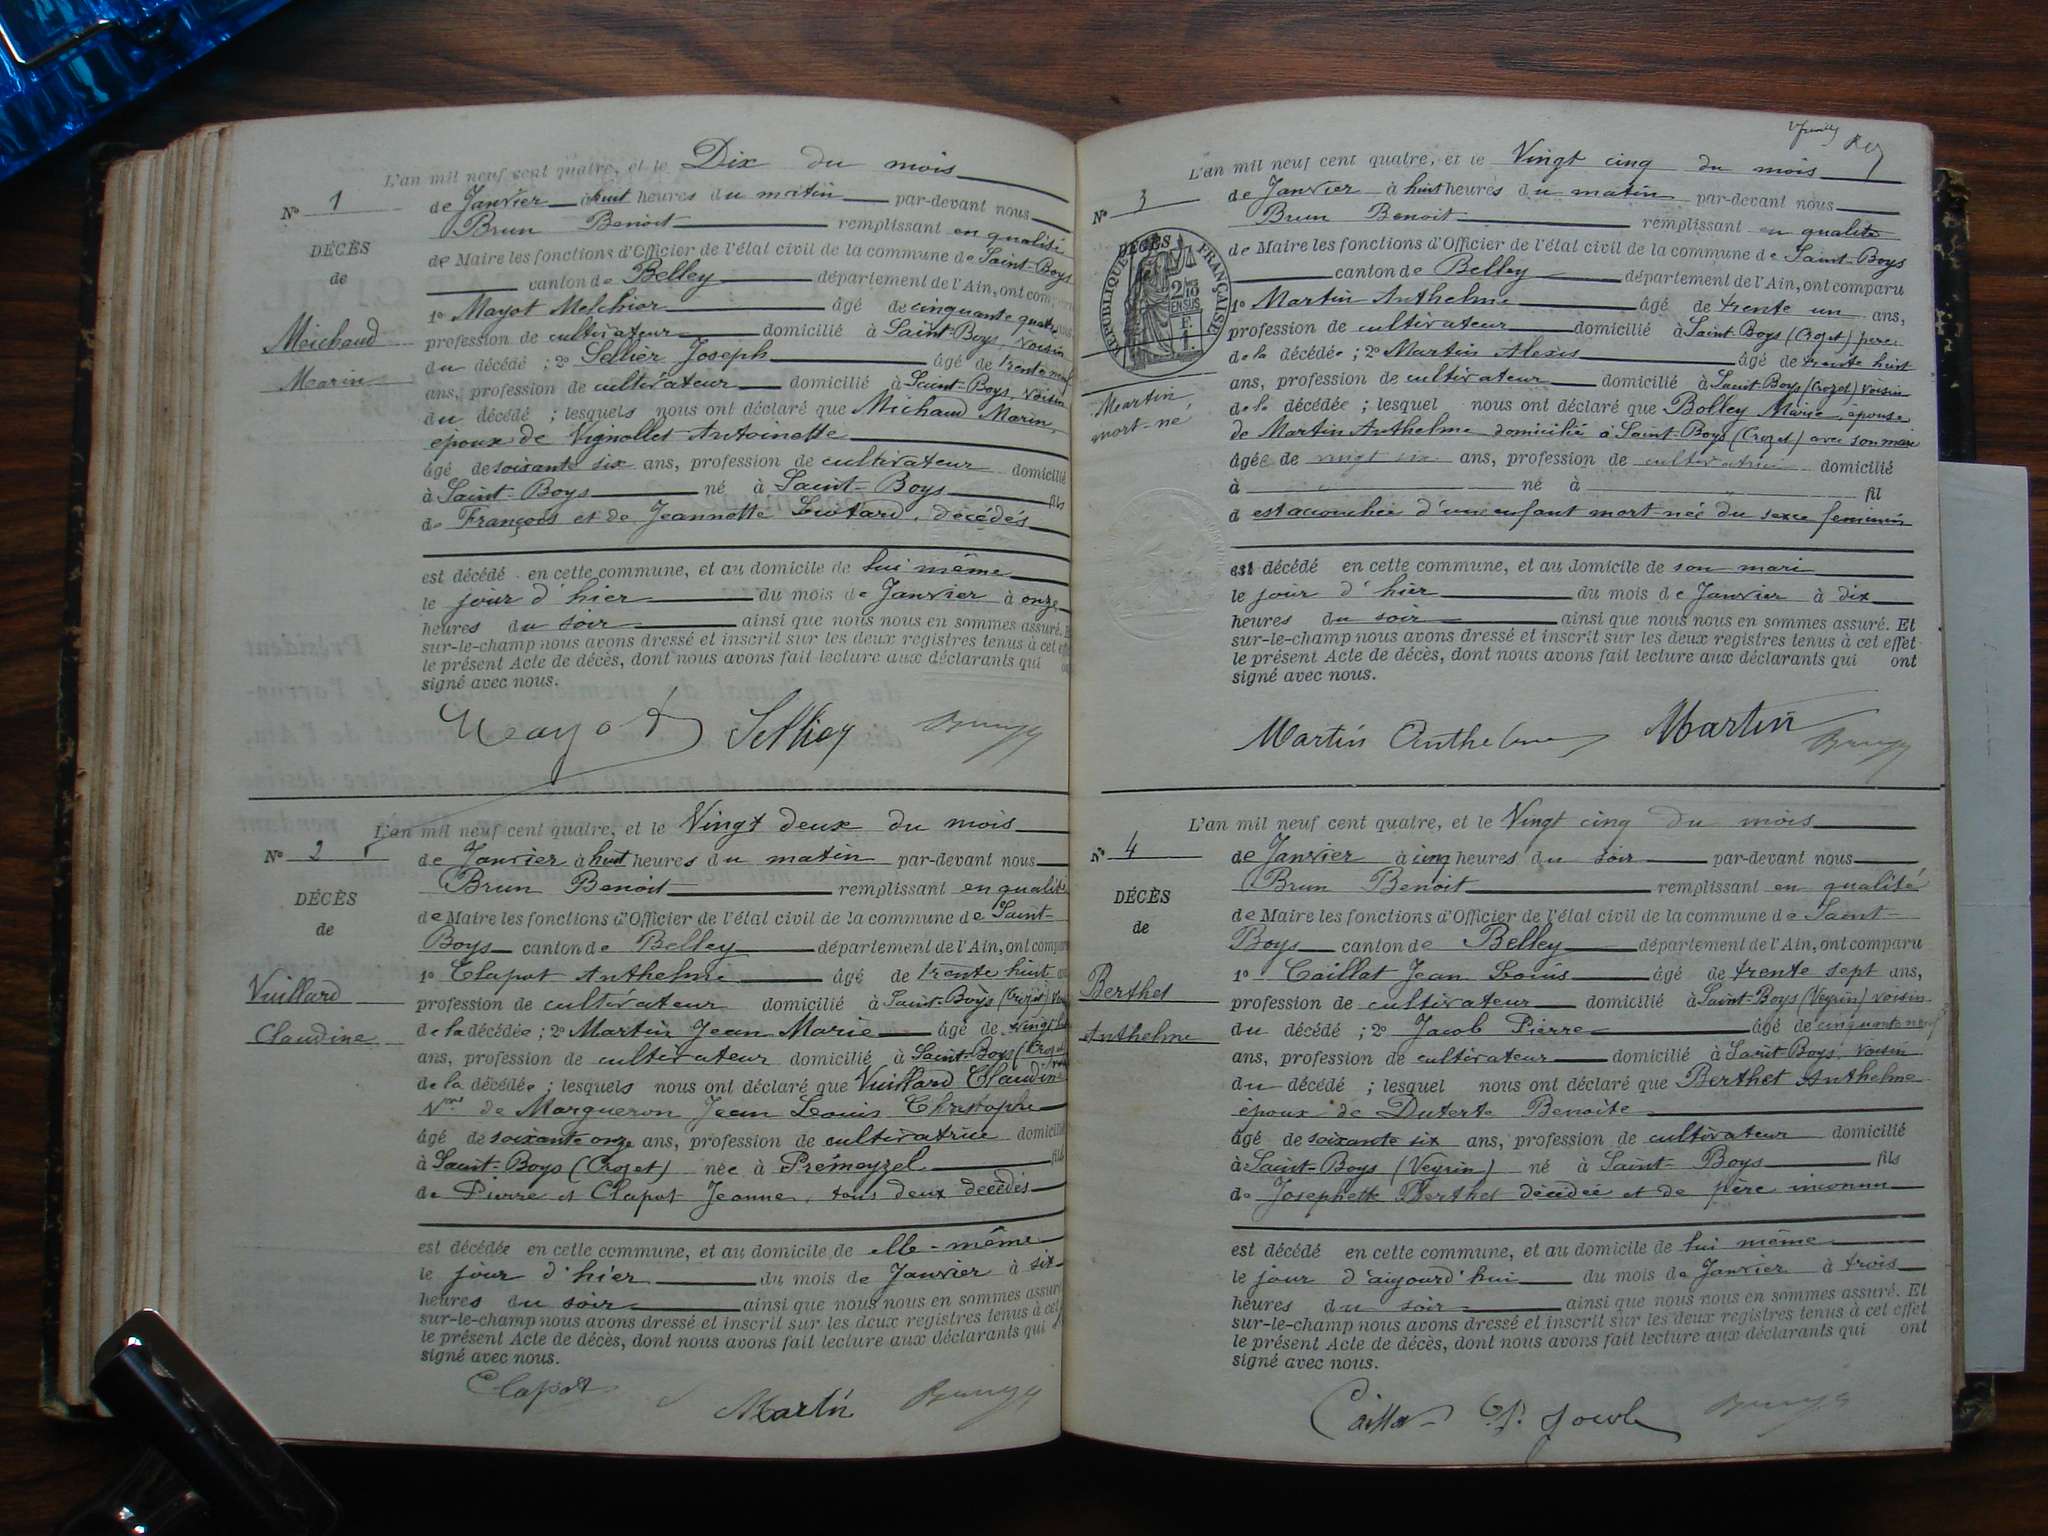 L'an mil neuf cent quatre, et le Dix du mois
de Janvier à huit heures du matin par-devant nous
Brun Benoit remplissant en qualité
de Maire les fonctions d'Officier de l'état civil de la commune de Saint-Boys
canton de Belley département de l'Ain, ont comparu
1o Mayot Melchior âgé de cinquante quatre
profession de cultivateur domicilié à Saint-Boys, voisin
du décédé ; 2o Sellier Joseph âgé de trente neuf
ans, profession de cultivateur domicilié à Saint-Boys, voisin
du décédé ; lesquels nous ont déclaré que Michaud Marin,
époux de Vignollet Antoinette
âgé de soixante six ans, profession de cultivateur domicilié
à Saint-Boys né à Saint-Boys fils
de François et de Jeannette, décédés
est décédé en cette commune, et au domicile de lui même
le jour d'hier du mois de Janvier à onze
heures du soir ainsi que nous nous en sommes assuré. Et
sur-le-champ nous avons dressé et inscrit sur les deux registres tenus à cet effet
le présent Acte de décès, dont nous avons fait lecture aux déclarants qui ont
signé avec nous.
No 1
DÉCÈS
de
Meichaud
Marin
Mayot Sellier
L'an mil neuf cent quatre, et le Vingt deux du mois
de Janvier à huit heures du matin par-devant nous
Brun Benoit remplissant en qualité
de Maire les fonctions d'Officier de l'état civil de la commune de Saint-
Boys canton de Belley département de l'Ain, ont comparu
1o Clapot Anthelme âgé de trente huit ans
profession de cultivateur domicilié à Saint-Boys (Crozet)
de la décédée ; 2o Martin Jean Marie âgé de
ans, profession de cultivateur domicilié à Saint-Boys (Crozet)
de la décédée ; lesquels nous ont déclaré que Vuillard Claudine
Vve de Margueron Jean Louis Christophe
âgé de soixante onze ans, profession de cultivatrice domicilié
à Saint-Boys (Crozet) née à Prémeyzel fils
de Pierre et Clapot Jeanne, tous deux décédés
est décédée en cette commune, et au domicile de elle-même
le jour d'hier du mois de Janvier à six
heures du soir ainsi que nous nous en sommes assuré
sur-le-champ nous avons dressé et inscrit sur les deux registres tenus à cet
le présent Acte de décès, dont nous avons fait lecture aux déclarants qui
signé avec nous.
No 2
DÉCÈS
de
Vuillard
Claudine
Clapot Martin
Rey
L'an mil neuf cent quatre, et le Vingt cinq du mois
de Janvier à huit heures du matin par-devant nous
Brun Benoit remplissant en qualité
de Maire les fonctions d'Officier de l'état civil de la commune de Saint-Boys
canton de Belley département de l'Ain, ont comparu
1o Martin Anthelme âgé de trente un ans,
profession de cultivateur domicilié à Saint Boys (Crozet) père
de la décédée ; 2o Martin Alexis âgé de trente huit
ans, profession de cultivateur domicilié à Saint-Boys (Crozet) voisin
de la décédée ; lesquel nous ont déclaré que Bolley Marie, épouse
de Martin Anthelme domicilié à Saint-Boys (Crozet) avec son mari
âgée de vingt six ans, profession de cultivatrice domicilié
à né à fil
d est accouchée d'un enfant mort-née du sexe féminin
est décédé en cette commune, et au domicile de son mari
le jour d'hier du mois de Janvier à dix
heures du soir ainsi que nous nous en sommes assuré. Et
sur-le-champ nous avons dressé et inscrit sur les deux registres tenus à cet effet
le présent Acte de décès, dont nous avons fait lecture aux déclarants qui ont
signé avec nous.
No 3
DÉCÈS
RÉPUBLIQUE FRANÇAISE
2/10 EN SUS
F. 1.
Martin
mort-né
Martin Anthelme Martin
L'an mil neuf cent quatre, et le Vingt cinq du mois
de Janvier à cinq heures du soir par-devant nous
Brun Benoit remplissant en qualité
de Maire les fonctions d'Officier de l'état civil de la commune de Saint-
Boys canton de Belley département de l'Ain, ont comparu
1o Caillat Jean Louis âgé de trente sept ans,
profession de cultivateur domicilié à Saint-Boys (Veyrin) voisin
du décédé ; 2o Jacob Pierre âgé de cinquante neuf
ans, profession de cultivateur domicilié à Saint Boys, voisin
du décédé ; lesquel nous ont déclaré que Berthet Anthelme
époux de Duterte Benoite
âgé de soixante six ans, profession de cultivateur domicilié
à Saint-Boys (Veyrin) né à Saint-Boys fils
de Josephette Berthet décédée et de père inconnu
est décédé en cette commune, et au domicile de lui même
le jour d'aujourd'hui du mois de Janvier à trois
heures du soir ainsi que nous nous en sommes assuré. Et
sur-le-champ nous avons dressé et inscrit sur les deux registres tenus à cet effet
le présent Acte de décès, dont nous avons fait lecture aux déclarants qui ont
signé avec nous.
No 4
DÉCÈS
de
Berthet
Anthelme
Caillat Jacob